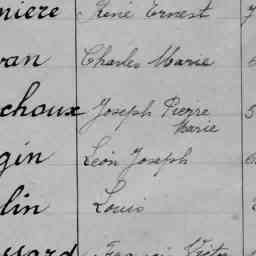 niere René Ernest 7
van Charles Marie
choux Joseph Pierre 5
Marie
gin Léon Joseph
lin Louis
ssard François Victor